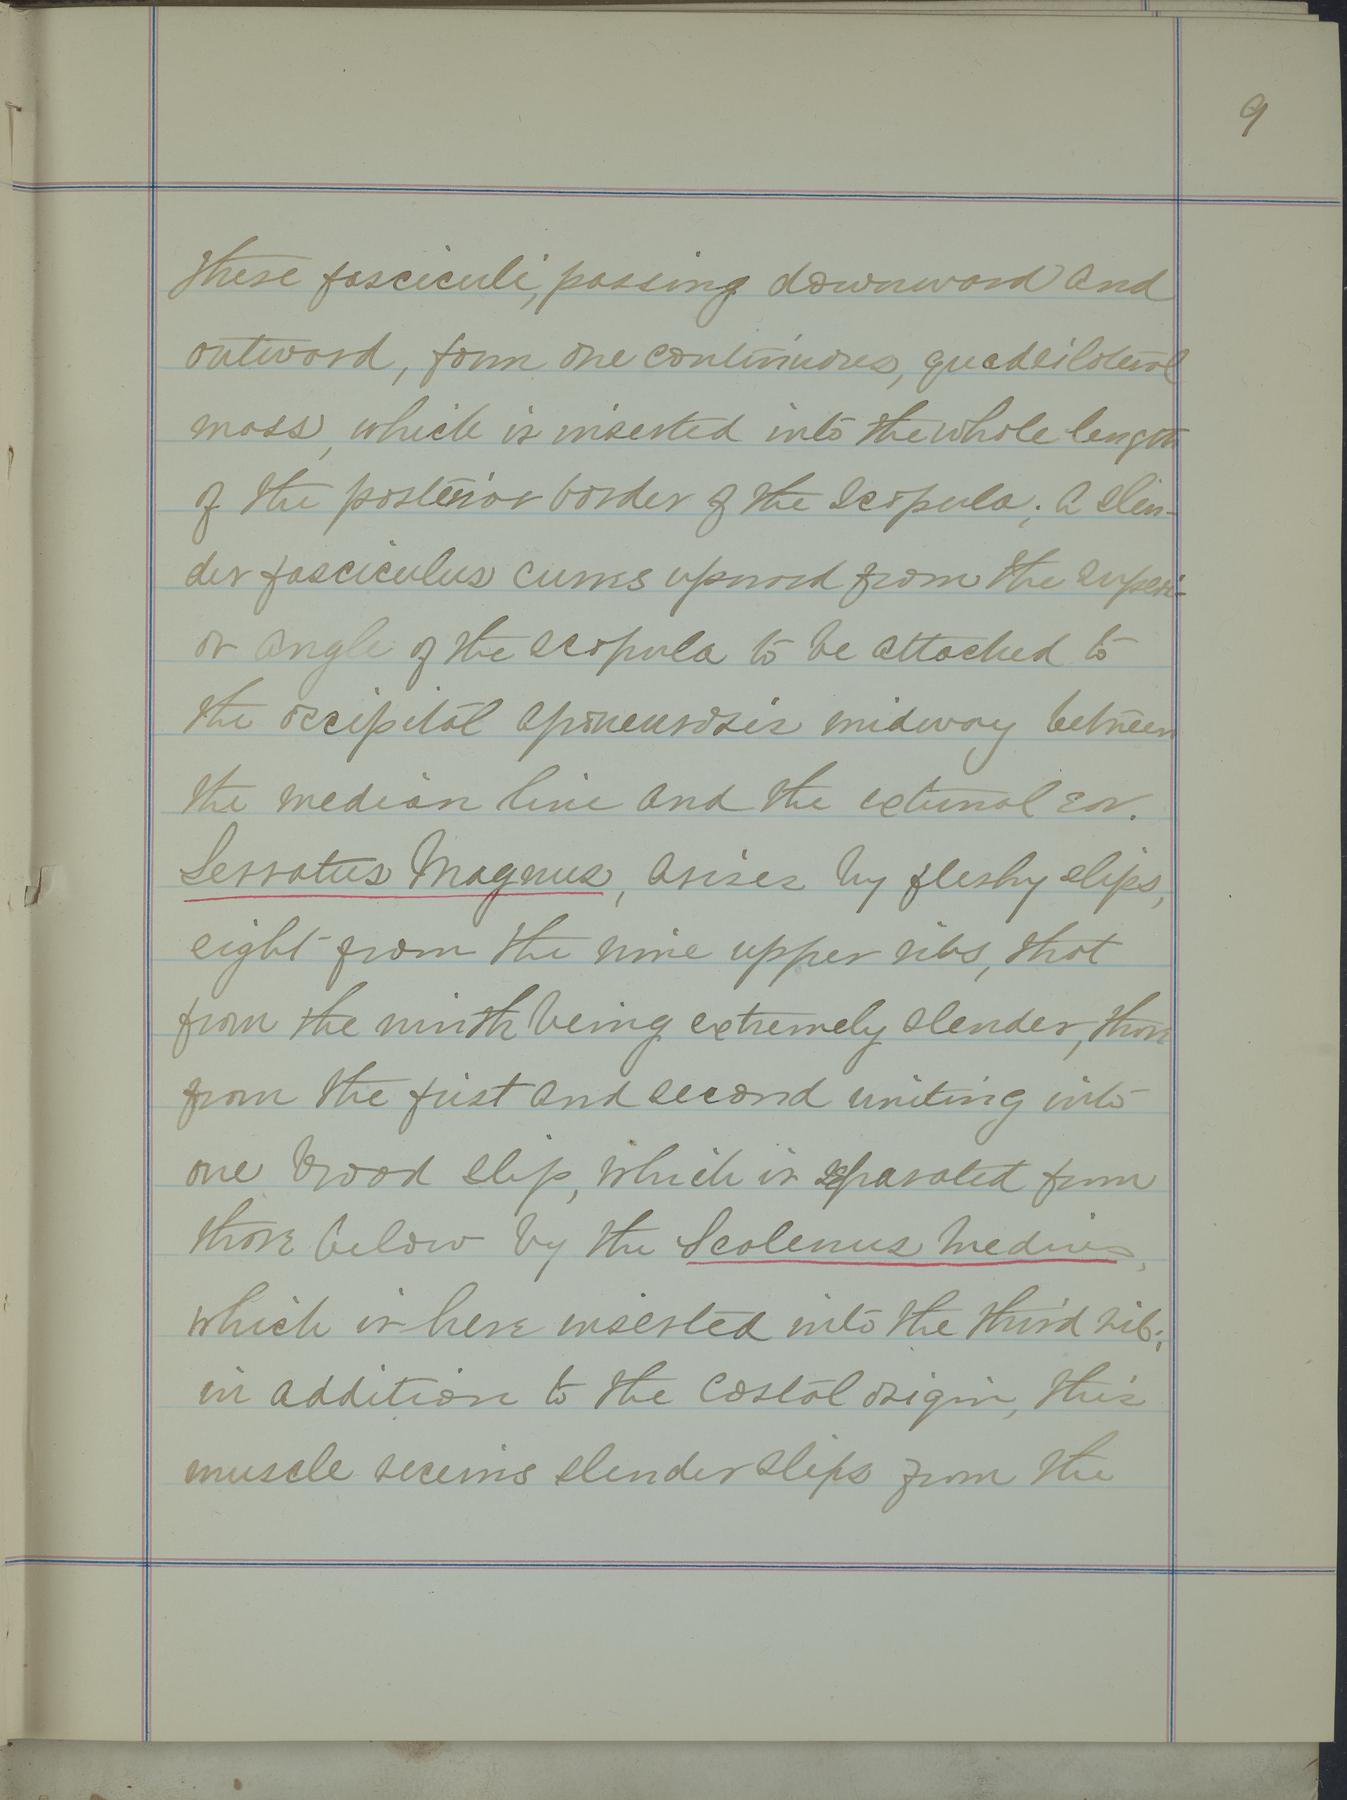 9
these fasciculi, passing downward and
outward, form one continuous, quadrilateral
mass, which is inserted into the whole length
of the posterior border of the scapula; a slen-
der fasciculus curves upward from the superi-
or angle of the scapula to be attached to
the occipital aponeurosis midway between
the median line and the external ear.
Serratus Magnus, arises by fleshy slips,
eight from the nine upper ribs, that
from the ninth being extremely slender, those
from the first and second uniting into
one broad slip, which is separated from
those below by the Scalenus Medius,
which is here inserted into the third rib;
in addition to the costal origin, this
muscle receives slender slips from the